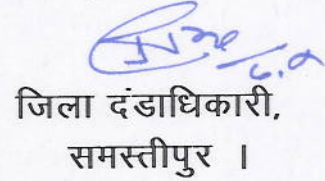 जिला दंडाधिकारी,
समस्तीपुर ।